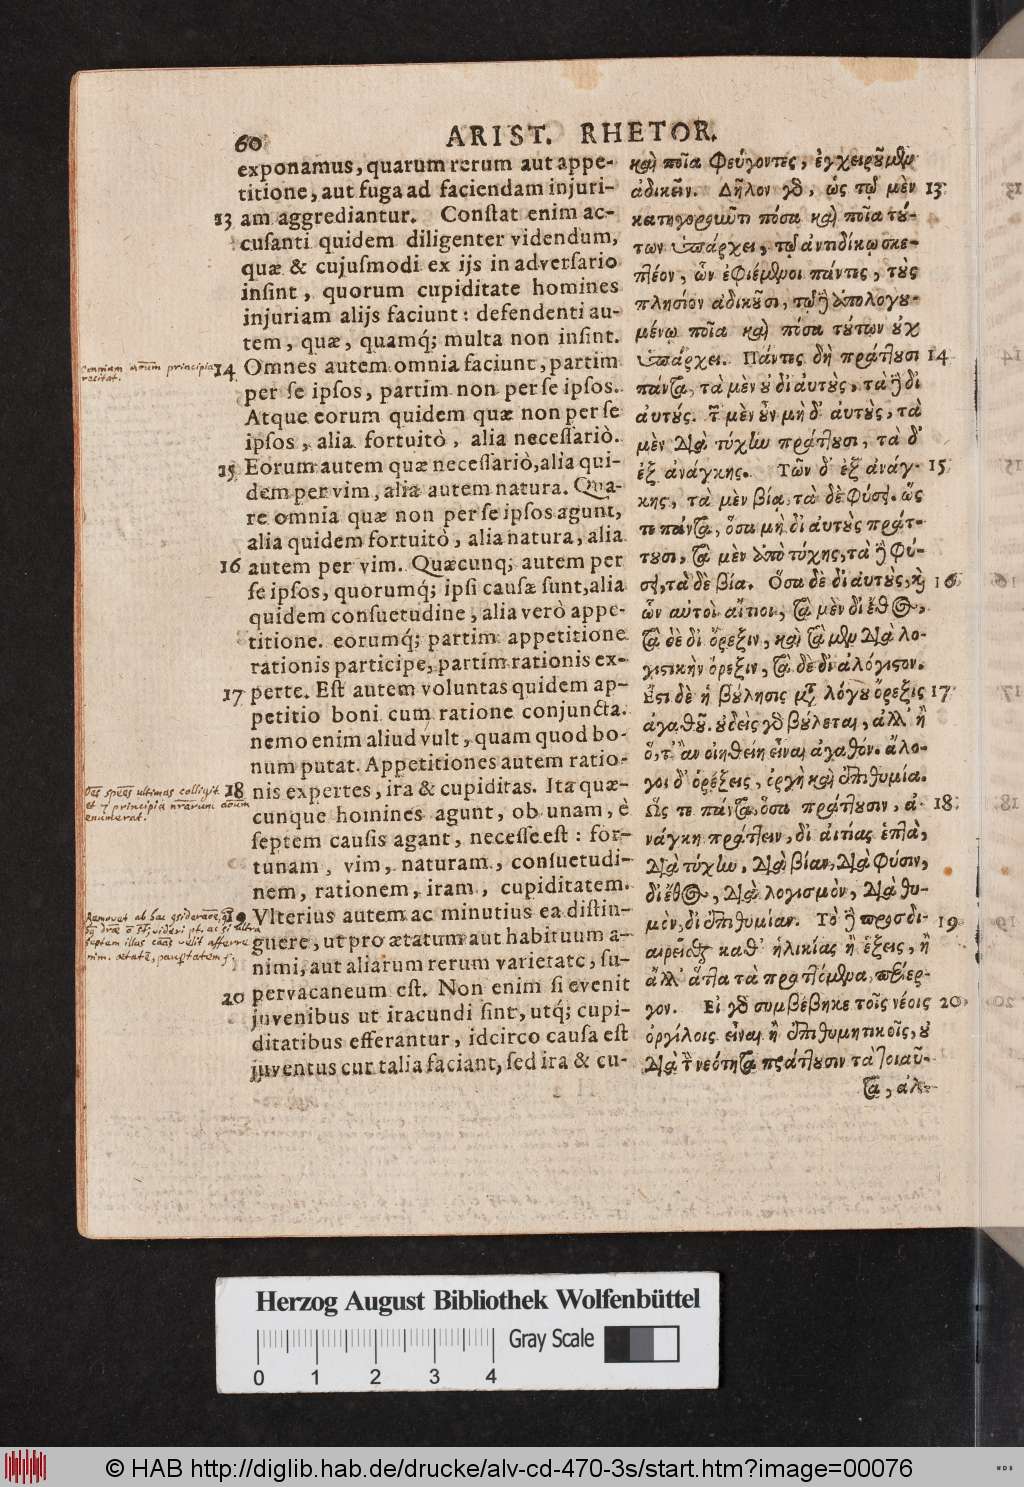 60
ARIST. RHETOR.
exponamus, quarum rerum aut appe-
titione, aut fuga ad faciendam injuri-
13 am aggrediantur. Conſtat enim ac-
cuſanti quidem diligenter videndum,
quæ & cujuſmodi ex ijs in adverſario
inſint, quorum cupiditate homines
injuriam alijs faciunt: defendenti au-
tem, quæ, quamq́; multa non inſint.
14 Omnes autem omnia faciunt, partim
per ſe ipſos, partim non per ſe ipſos.
Atque eorum quidem quæ non per ſe
ipſos, alia fortuitò, alia neceſſariò.
15 Eorum autem quæ neceſſariò, alia qui-
dem per vim, alia autem natura. Qua-
re omnia quæ non per ſe ipſos agunt,
alia quidem fortuitò, alia natura, alia
16 autem per vim. Quæcunq; autem per
ſe ipſos, quorumq́; ipſi cauſæ ſunt, alia
quidem conſuetudine, alia verò appe-
titione. eorumq́; partim appetitione
rationis participe, partim rationis ex-
17 perte. Eſt autem voluntas quidem ap-
petitio boni cum ratione conjuncta.
nemo enim aliud vult, quam quod bo-
num putat. Appetitiones autem ratio-
18 nis expertes, ira & cupiditas. Ita quæ-
cunque homines agunt, ob unam, è
ſeptem cauſis agant, neceſſe eſt: for-
tunam, vim, naturam, conſuetudi-
nem, rationem, iram, cupiditatem.
19 Vlterius autem ac minutius ea diſtin-
guere, ut pro ætatum aut habituum a-
nimi, aut aliarum rerum varietate, ſu-
pervacaneum eſt. Non enim ſi evenit
20 juvenibus ut iracundi ſint, utq́; cupi-
ditatibus efferantur, idcirco cauſa eſt
juventus cur talia faciant, ſed ira & cu-
καὶ ποῖα φεύγοντες, ἐγχειροῦμεν
ἀδικεῖν. Δῆλον γὰρ, ὡς τῷ μὲν 13
κατηγοροῦντι πόσα καὶ ποῖα τού-
των ὑπάρχει, τῷ ἀντιδίκῳ σκε-
πτέον, ὧν ἐφιέμενοι πάντες, τοὺς
πλησίον ἀδικοῦσι, τῷ δὲ ἀπολογου-
μένῳ ποῖα καὶ πόσα τούτων οὐχ
ὑπάρχει. Πάντες δὴ πράττουσι 14
πάντα, τὰ μὲν οὐ δι αὐτοὺς, τὰ δὲ δι
αυτούς. τῶν μὲν οὖν μὴ δι᾽ αὐτοὺς, τὰ
μὲν διὰ τύχην πράττουσι, τὰ δ᾽
ἐξ ἀνάγκης. Τῶν δ᾽ ἐξ ἀνάγ- 15
κης, τὰ μὲν βίᾳ, τὰ δὲ φύσει. ὥς
τε πάντα, ὅσα μὴ δι αὐτοὺς πράτ-
τουσι, τὰ μὲν ἀπὸ τύχης, τὰ δὲ φύ-
σει, τὰ δὲ βίᾳ. Ὅσα δὲ δι αυτοὺς, καὶ 16
ὧν αυτοὶ αἴτιοι, τὰ μὲν δι ἔθος,
τὰ δὲ δι ὄρεξιν, καὶ τὰ μὲν διὰ λο-
γιστικὴν ὄρεξιν, τὰ δὲ δι ἀλόγιστον.
Ἔστι δὲ ἡ βούλησις μετὰ λόγου ὄρεξις 17
ἀγαθοῦ. οὐδεὶς γὰρ βούλεται, ἀλλ᾽ ἢ
ὅ, τι ἂν οἰηθείη εἶναι ἀγαθόν. ἄλο-
γοι δ᾽ ὀρέξεις, ὀργὴ καὶ ἐπιθυμία.
ὥς τε πάντα, ὅσα πράττουσιν, ἀ- 18
νάγκη πράττειν, δι αἰτίας ἑπτὰ,
διὰ τύχην, διὰ βίαν, διὰ φύσιν,
δι ἔθος, διὰ λογισμὸν, διὰ θυ-
μὸν, δι ἐπιθυμίαν. Τὸ δὲ προσδι- 19
αιρεῖσθαι καθ᾽ ἡλικίας ἢ ἕξεις, ἢ
ἄλλ᾽ ἄττα τὰ πραττόμενα, περίερ-
γον. Εἰ γὰρ συμβέβηκε τοῖς νέοις 20
ὀργίλοις εἶναι ἢ ἐπιθυμητικοῖς, οὐ
διὰ τὴν νεότητα πράττουσιν τὰ τοιαῦ-
τα, ἀλ-
Herzog August Bibliothek Wolfenbüttel
Gray Scale
0 1 2 3 4
© HAB http://diglib.hab.de/drucke/alv-cd-470-3s/start.htm?image=00076